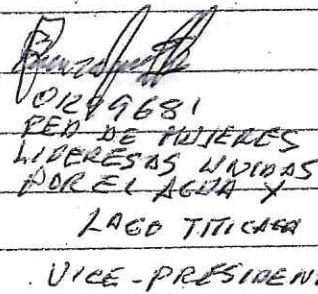 01299681
RED DE MUJERES
LIDERESAS UNIDAS
POR EL AGUA Y
LAGO TITICACA
VICE-PRESIDEN